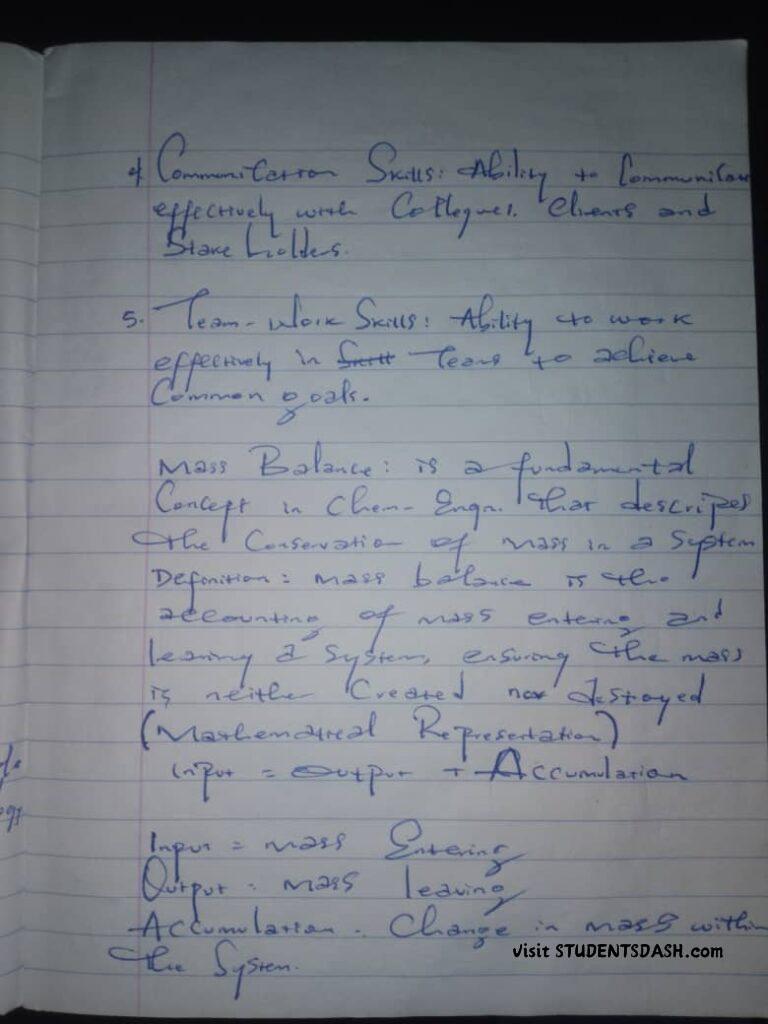 4 Communication Skills: Ability to Communicate
effectively with Collegues. Clients and
Stake holders.
5. Team-Work Skills: Ability to work
effectively in Teams to achieve
Common goals.
Mass Balance: is a fundamental
Concept in Chem- Engr. that descripes
the Conservation of mass in a System
Definition: mass balance is the
accounting of mass entering and
leaving a System, ensuring the mass
is neither Created nor destroyed
(Mathematical Representation)
Input = Output + Accumulation
Input = mass Entering
Output = mass leaving
Accumulation. Change in mass within
the System.
visit STUDENTSDASH.com